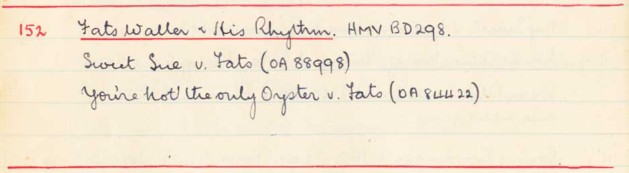 152 Fats Waller & His Rhythm. HMV BD298.
Sweet Sue v. Fats (OA 88998)
You're not the only Oyster v. Fats (OA 84422)